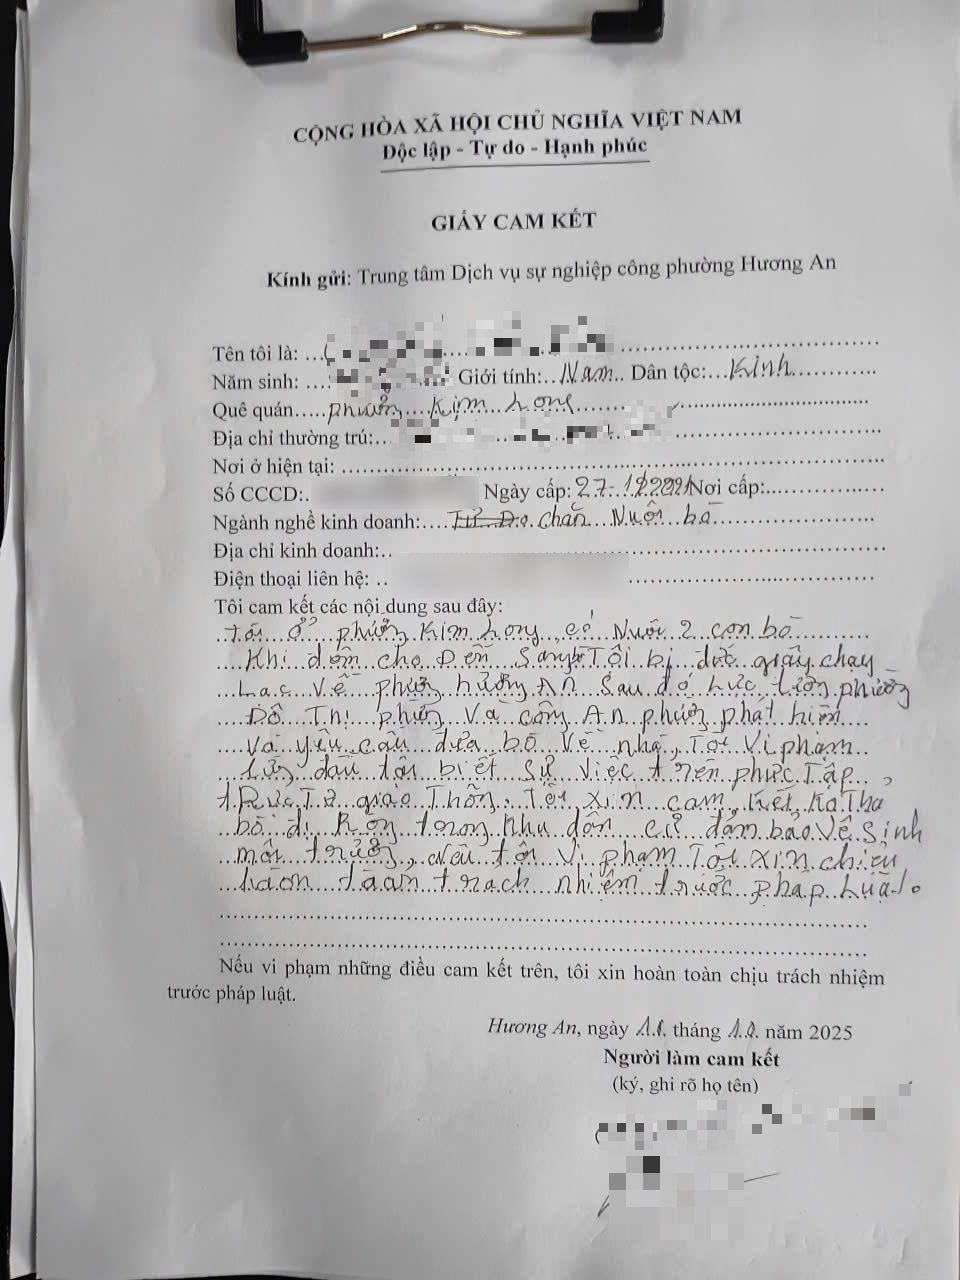 CỘNG HÒA XÃ HỘI CHỦ NGHĨA VIỆT NAM
Độc lập - Tự do - Hạnh phúc
GIẤY CAM KẾT
Kính gửi: Trung tâm Dịch vụ sự nghiệp công phường Hương An
Tên tôi là:
Năm sinh: Giới tính: Nam Dân tộc: Kinh
Quê quán phường Kim Long
Địa chỉ thường trú:
Nơi ở hiện tại:
Số CCCD: Ngày cấp: 27-12 2021 Nơi cấp:
Ngành nghề kinh doanh: Tự Do chăn Nuôi bò
Địa chỉ kinh doanh:
Điện thoại liên hệ:
Tôi cam kết các nội dung sau đây:
Tôi ở phường Kim Long, có Nuôi 2 con bò
Khi dồn cho Đến Tôi bị đứt giây chạy
Lạc về phường hương AN Sau đó Lực lượng phường
Đô Thị phường Và công An phường phát hiện
Và yêu cầu đưa bò về nhà, Tôi Vi phạm
Lần đầu tôi biết Sự việc trên phức Tập,
Trực Tự giao Thông, Tôi xin cam kết Ko Thả
bò đi Rông trong khu dân cư đảm bảo Vệ Sinh
môi trường, Nếu tôi Vi phạm Tôi xin chiệu
hoàn toàn trách nhiệm trước pháp Luật.
Nếu vi phạm những điều cam kết trên, tôi xin hoàn toàn chịu trách nhiệm
trước pháp luật.
Hương An, ngày tháng 10 năm 2025
Người làm cam kết
(ký, ghi rõ họ tên)